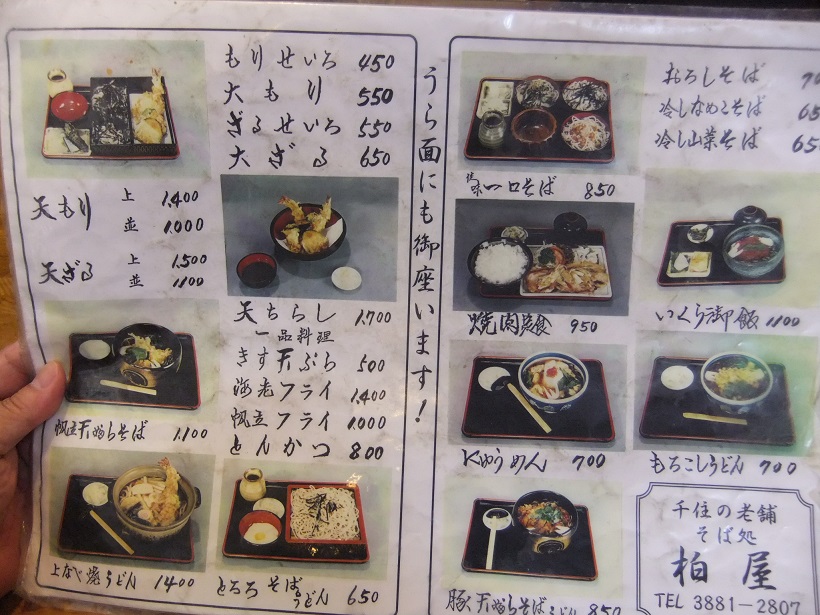 もりせいろ 450
大もり 550
ざるせいろ 550
大ざる 650
天もり 上 1,400
並 1,000
天ざる 上 1,500
並 1100
天ちらし 1,700
一品料理
きす天ぷら 500
海老フライ 1,400
帆立フライ 1,000
とんかつ 800
帆立天ぷらそば 1,100
上なべ焼うどん 1400
とろろそば
うどん 650
うら面にも御座います！
おろしそば
冷しなめこそば
冷し山菜そば
一口そば 850
焼肉定食 950
いくら御飯 1100
にゅうめん 700
もろこしうどん 700
豚天ぷらそば
うどん 850
千住の老舗
そば処
柏屋
TEL 3881-2807